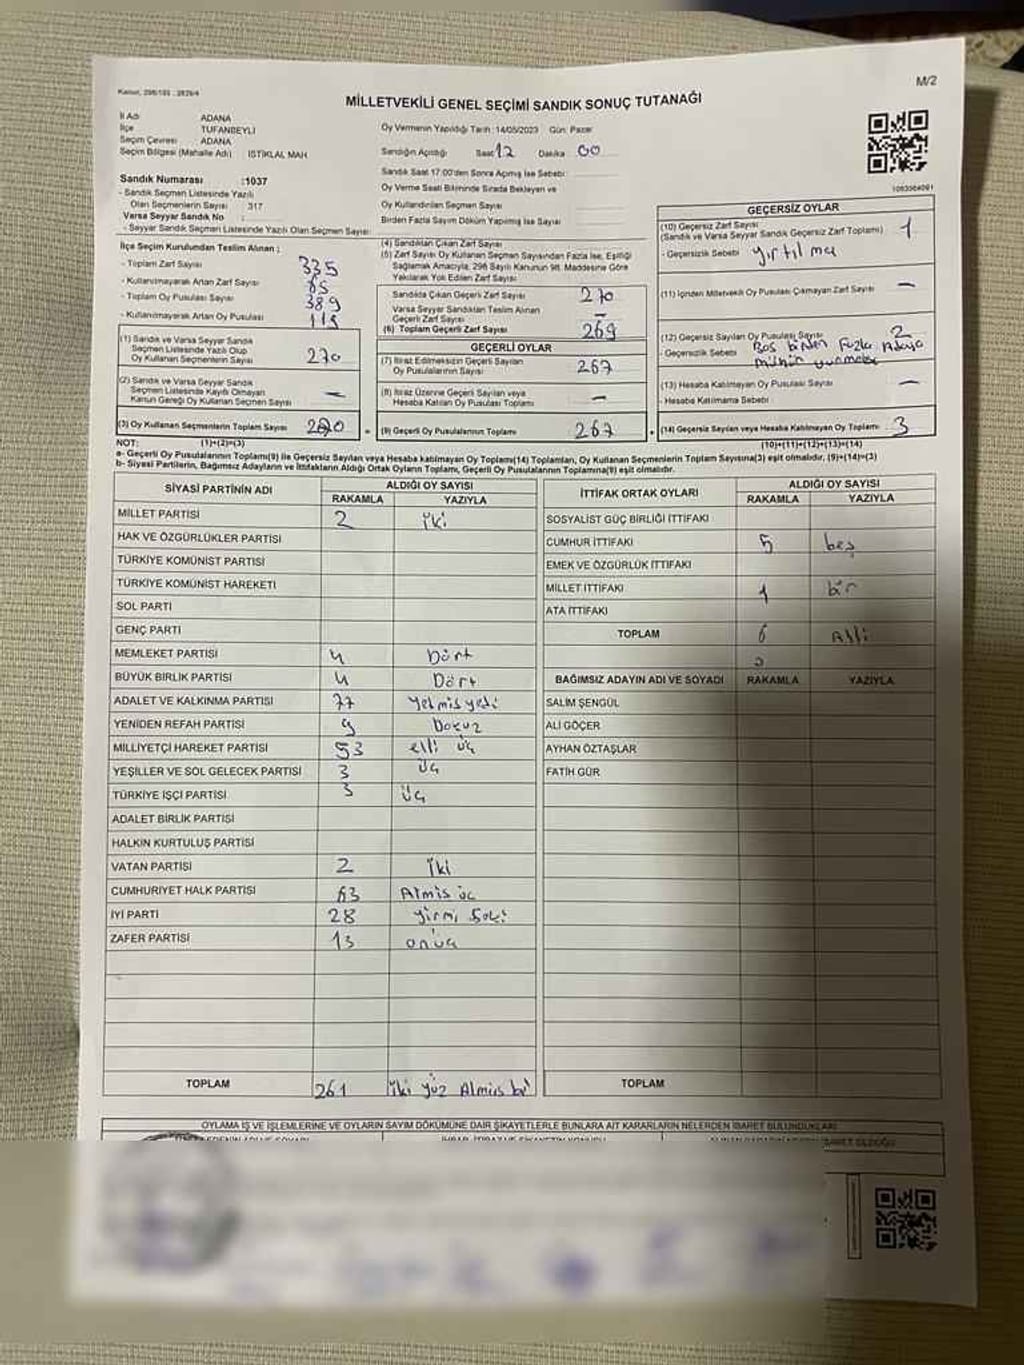 M/2
MİLLETVEKİLİ GENEL SEÇİMİ SANDIK SONUÇ TUTANAĞI
İl Adı ADANA
İlçe TUFANBEYLİ
Seçim Çevresi : ADANA
Seçim Bölgesi (Mahalle Adı) : İSTİKLAL MAH
Oy Vermenin Yapıldığı Tarih : 14/05/2023 Gün: Pazar
Sandığın Açıldığı Saat 12 Dakika 00
Sandık Saat 17:00'den Sonra Açılmış İse Sebebi
Oy Verme Saati Bitiminde Sırada Bekleyen ve
Oy Kullandırılan Seçmen Sayısı
Birden Fazla Sayım Döküm Yapılmış İse Sayısı
Sandık Numarası :1037
- Sandık Seçmen Listesinde Yazılı
Olan Seçmenlerin Sayısı 317
Varsa Seyyar Sandık No :
- Seyyar Sandık Seçmen Listesinde Yazılı Olan Seçmen Sayısı
İlçe Seçim Kurulundan Teslim Alınan ;
- Toplam Zarf Sayısı 335
- Kullanılmayarak Artan Zarf Sayısı 65
- Toplam Oy Pusulası Sayısı 389
- Kullanılmayarak Artan Oy Pusulası 119
(1) Sandık ve Varsa Seyyar Sandık
Seçmen Listesinde Yazılı Olup
Oy Kullanan Seçmenlerin Sayısı 270
(2) Sandık ve Varsa Seyyar Sandık
Seçmen Listesinde Kayıtlı Olmayan
Kanun Gereği Oy Kullanan Seçmen Sayısı —
(3) Oy Kullanan Seçmenlerin Toplam Sayısı 270
(4) Sandıktan Çıkan Zarf Sayısı
(5) Zarf Sayısı Oy Kullanan Seçmen Sayısından Fazla İse, Eşitliği
Sağlamak Amacıyla, 298 Sayılı Kanunun 98. Maddesine Göre
Yakılarak Yok Edilen Zarf Sayısı
Sandıkta Çıkan Geçerli Zarf Sayısı 270
Varsa Seyyar Sandıktan Teslim Alınan
Geçerli Zarf Sayısı —
(6) Toplam Geçerli Zarf Sayısı 269
GEÇERLİ OYLAR
(7) İtiraz Edilmeksizin Geçerli Sayılan
Oy Pusulalarının Sayısı 267
(8) İtiraz Üzerine Geçerli Sayılan veya
Hesaba Katılan Oy Pusulası Toplamı —
(9) Geçerli Oy Pusulalarının Toplamı 267
GEÇERSİZ OYLAR
(10) Geçersiz Zarf Sayısı
(Sandık ve Varsa Seyyar Sandık Geçersiz Zarf Toplamı) 1
- Geçersizlik Sebebi yırtılma
(11) İçinden Milletvekili Oy Pusulası Çıkmayan Zarf Sayısı —
(12) Geçersiz Sayılan Oy Pusulası Sayısı 2
- Geçersizlik Sebebi Boş birden Fazla Adaya
(13) Hesaba Katılmayan Oy Pusulası Sayısı —
- Hesaba Katılmama Sebebi
(14) Geçersiz Sayılan veya Hesaba Katılmayan Oy Toplamı 3
NOT: (1)+(2)=(3) (10)+(11)+(12)+(13)=(14)
a- Geçerli Oy Pusulalarının Toplamı(9) ile Geçersiz Sayılan veya Hesaba Katılmayan Oy Toplamı(14) Toplamları, Oy Kullanan Seçmenlerin Toplam Sayısına(3) eşit olmalıdır. (9)+(14)=(3)
b- Siyasi Partilerin, Bağımsız Adayların ve İttifakların Aldığı Ortak Oyların Toplamı, Geçerli Oy Pusulalarının Toplamına(9) eşit olmalıdır.
SİYASİ PARTİNİN ADI ALDIĞI OY SAYISI
RAKAMLA YAZIYLA
MİLLET PARTİSİ 2 iki
HAK VE ÖZGÜRLÜKLER PARTİSİ
TÜRKİYE KOMÜNİST PARTİSİ
TÜRKİYE KOMÜNİST HAREKETİ
SOL PARTİ
GENÇ PARTİ
MEMLEKET PARTİSİ 4 Dört
BÜYÜK BİRLİK PARTİSİ 4 Dört
ADALET VE KALKINMA PARTİSİ 77 yetmişyedi
YENİDEN REFAH PARTİSİ 9 Dokuz
MİLLİYETÇİ HAREKET PARTİSİ 53 elli üç
YEŞİLLER VE SOL GELECEK PARTİSİ 3 üç
TÜRKİYE İŞÇİ PARTİSİ 3 üç
ADALET BİRLİK PARTİSİ
HALKIN KURTULUŞ PARTİSİ
VATAN PARTİSİ 2 iki
CUMHURİYET HALK PARTİSİ 63 Atmış üç
İYİ PARTİ 28 yirmi Sekiz
ZAFER PARTİSİ 13 onüç
TOPLAM 261 iki yüz Atmış bir
İTTİFAK ORTAK OYLARI ALDIĞI OY SAYISI
RAKAMLA YAZIYLA
SOSYALİST GÜÇ BİRLİĞİ İTTİFAKI
CUMHUR İTTİFAKI 5 beş
EMEK VE ÖZGÜRLÜK İTTİFAKI
MİLLET İTTİFAKI 1 bir
ATA İTTİFAKI
TOPLAM 6 Altı
BAĞIMSIZ ADAYIN ADI VE SOYADI RAKAMLA YAZIYLA
SALİM ŞENGÜL
ALİ GÖÇER
AYHAN ÖZTAŞLAR
FATİH GÜR
TOPLAM
OYLAMA İŞ VE İŞLEMLERİNE VE OYLARIN SAYIM DÖKÜMÜNE DAİR ŞİKAYETLERLE BUNLARA AİT KARARLARIN NELERDEN İBARET BULUNDUKLARI